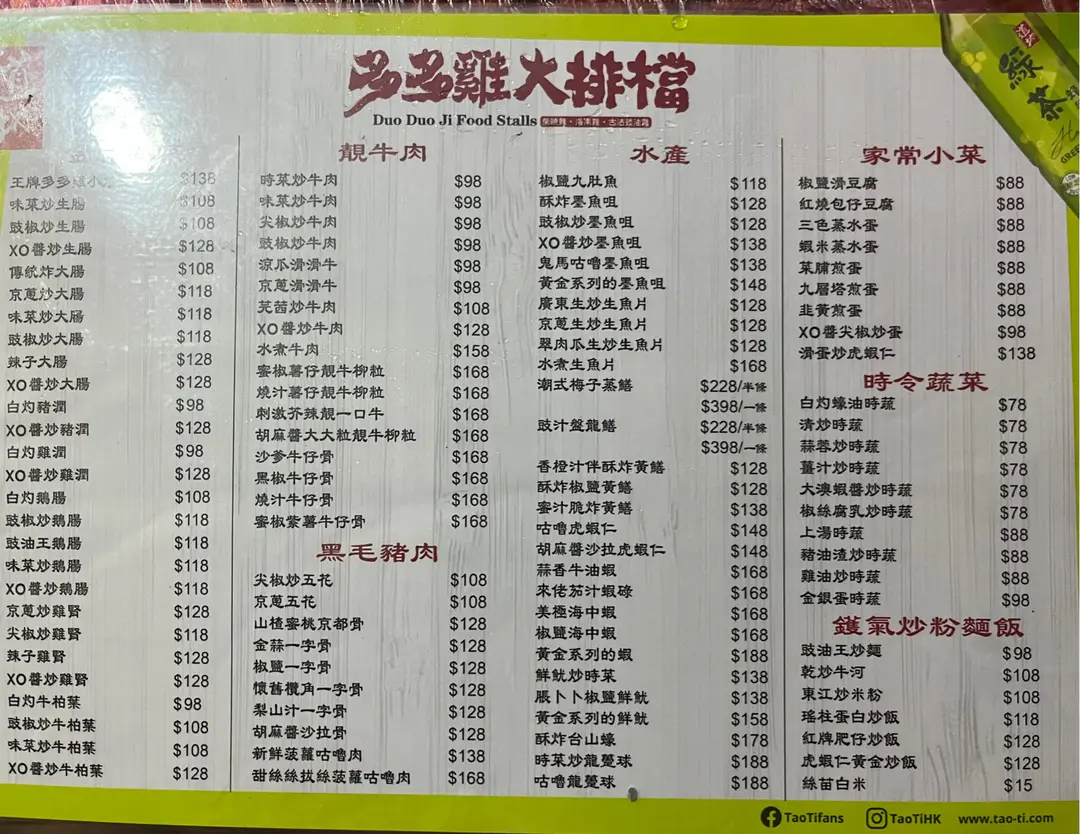 多多雞大排檔
Duo Duo Ji Food Stalls
綠茶
王牌多多雞小 $138
味菜炒生腸 $108
豉椒炒生腸 $108
XO醬炒生腸 $128
傳統炸大腸 $108
京蔥炒大腸 $118
味菜炒大腸 $118
豉椒炒大腸 $118
辣子大腸 $128
XO醬炒大腸 $128
白灼豬潤 $98
XO醬炒豬潤 $128
白灼雞潤 $98
XO醬炒雞潤 $128
白灼鵝腸 $108
豉椒炒鵝腸 $118
豉油王鵝腸 $118
味菜炒鵝腸 $118
XO醬炒鵝腸 $118
京蔥炒雞腎 $128
尖椒炒雞腎 $118
辣子雞腎 $128
XO醬炒雞腎 $128
白灼牛柏葉 $98
豉椒炒牛柏葉 $108
味菜炒牛柏葉 $108
XO醬炒牛柏葉 $128
靚牛肉
時菜炒牛肉 $98
味菜炒牛肉 $98
尖椒炒牛肉 $98
豉椒炒牛肉 $98
涼瓜滑滑牛 $98
京蔥滑滑牛 $98
芫茜炒牛肉 $108
XO醬炒牛肉 $128
水煮牛肉 $158
蜜椒薯仔靚牛柳粒 $168
燒汁薯仔靚牛柳粒 $168
刺激芥辣靚一口牛 $168
胡麻醬大大粒靚牛柳粒 $168
沙爹牛仔骨 $168
黑椒牛仔骨 $168
燒汁牛仔骨 $168
蜜椒紫薯牛仔骨 $168
黑毛豬肉
尖椒炒五花 $108
京蔥五花 $108
山楂蜜桃京都骨 $128
金蒜一字骨 $128
椒鹽一字骨 $128
懷舊欖角一字骨 $128
梨山汁一字骨 $128
胡麻醬沙拉骨 $128
新鮮菠蘿咕嚕肉 $138
甜絲絲拔絲菠蘿咕嚕肉 $168
水產
椒鹽九肚魚 $118
酥炸墨魚咀 $128
豉椒炒墨魚咀 $128
XO醬炒墨魚咀 $138
鬼馬咕嚕墨魚咀 $138
黃金系列的墨魚咀 $148
廣東生炒生魚片 $128
京蔥生炒生魚片 $128
翠肉瓜生炒生魚片 $128
水煮生魚片 $168
潮式梅子蒸鱔 $228/半條
$398/一條
豉汁盤龍鱔 $228/半條
$398/一條
香橙汁伴酥炸黃鱔 $128
酥炸椒鹽黃鱔 $128
蜜汁脆炸黃鱔 $138
咕嚕虎蝦仁 $148
胡麻醬沙拉虎蝦仁 $148
蒜香牛油蝦 $168
來佬茄汁蝦碌 $168
美極海中蝦 $168
椒鹽海中蝦 $168
黃金系列的蝦 $188
鮮魷炒時菜 $138
脹卜卜椒鹽鮮魷 $138
黃金系列的鮮魷 $158
酥炸台山蠔 $178
時菜炒龍躉球 $188
咕嚕龍躉球 $188
家常小菜
椒鹽滑豆腐 $88
紅燒包仔豆腐 $88
三色蒸水蛋 $88
蝦米蒸水蛋 $88
菜脯煎蛋 $88
九層塔煎蛋 $88
韭黃煎蛋 $88
XO醬尖椒炒蛋 $98
滑蛋炒虎蝦仁 $138
時令蔬菜
白灼蠔油時蔬 $78
清炒時蔬 $78
蒜蓉炒時蔬 $78
薑汁炒時蔬 $78
大澳蝦醬炒時蔬 $78
椒絲腐乳炒時蔬 $78
上湯時蔬 $88
豬油渣炒時蔬 $88
雞油炒時蔬 $88
金銀蛋時蔬 $98
鑊氣炒粉麵飯
豉油王炒麵 $98
乾炒牛河 $108
東江炒米粉 $108
瑤柱蛋白炒飯 $118
紅牌肥仔炒飯 $128
虎蝦仁黃金炒飯 $128
絲苗白米 $15
TaoTifans TaoTiHK www.tao-ti.com